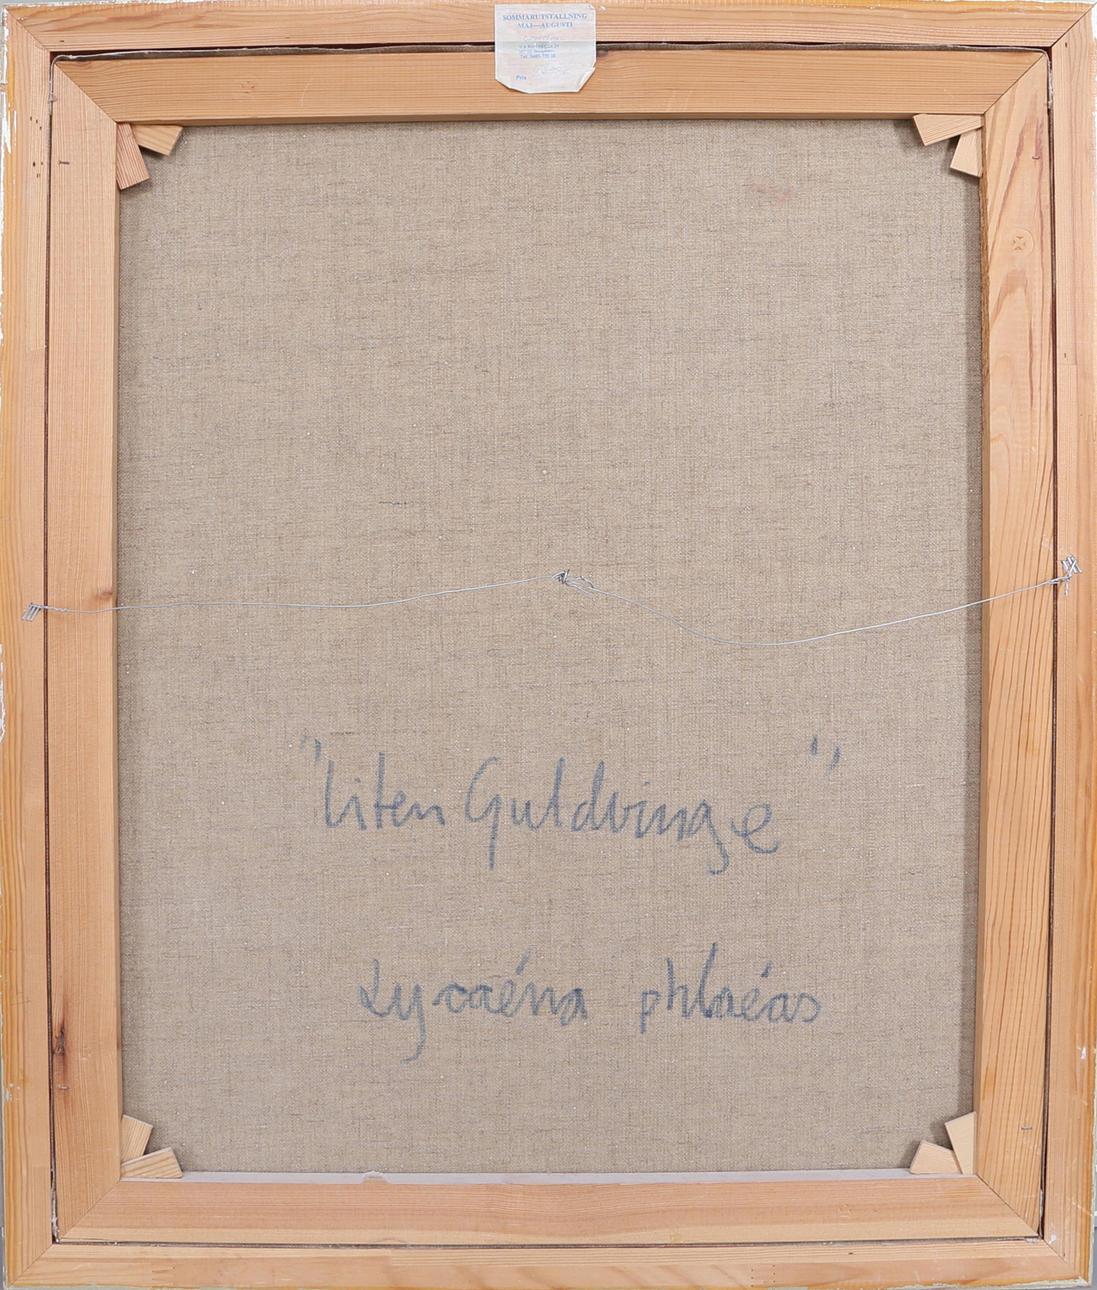 SOMMARUTSTÄLLNING
MAJ—AUGUSTI
Pris
"Liten Guldvinge"
Lycaéna phlaéas